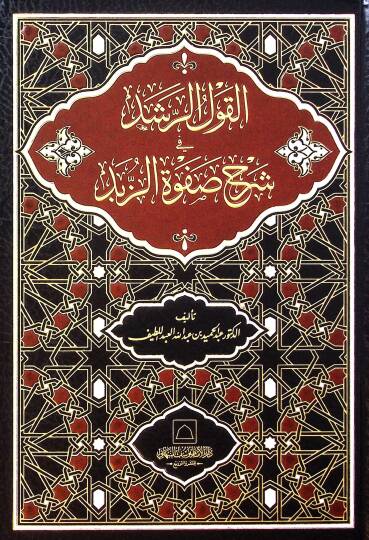 القول الرشد
في
شرح صفوة الزبد
تأليف
الدكتور عبد الحميد بن عبد الله العبد اللطيف
للنشر والتوزيع